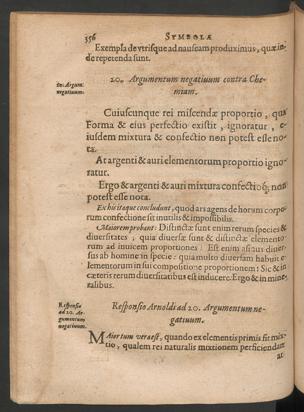 356
SYMBOLÆ
Exempla de vtrisque ad nauseam produximus, quæ in-
de repetenda sunt.
20. Argum:
negatiuum.
20. Argumentum negatiuum contra Che-
miam.
Cuiuscunque rei miscendæ proportio, qua
Forma & eius perfectio existit, ignoratur, e-
iusdem mixtura & confectio non potest esse no-
ta.
At argenti & auri elementorum proportio igno-
ratur.
Ergo & argenti & auri mixtura confectioq́; non
potest esse nota.
Ex his itaque concludunt, quod ars agens de horum corpo-
rum confectione sit inutilis & impossibilis.
Maiorem probant: Distinctæ sunt enim rerum species &
diuersitates, quia diuersæ sunt & distinctæ elemento-
rum ad inuicem proportiones: Est enim asinus diuer-
sus ab homine in specie: quia multo diuersam habuit e-
lementorum in sui compositione proportionem: Sic & in
cæteris rerum diuersitatibus est inducere. Ergo & in mine-
ralibus.
Responsio
ad 20. Ar-
gumentum
negatiuum.
Responsio Arnoldi ad 20. Argumentum ne-
gatiuum.
Maior tum vera est, quando ex elementis primis fit mix-
tio, qualem rei naturalis mixtionem perficiendam
at